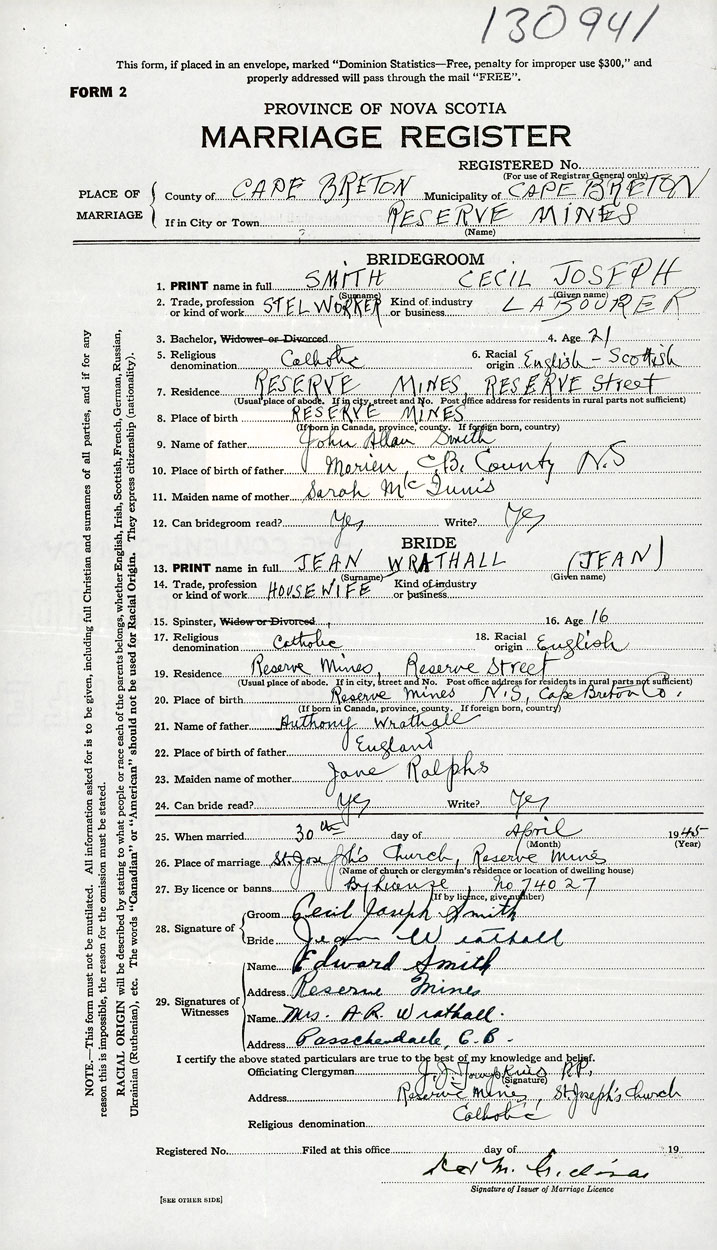 130941
This form, if placed in an envelope, marked “Dominion Statistics—Free, penalty for improper use $300,” and
properly addressed will pass through the mail “FREE”.
FORM 2
PROVINCE OF NOVA SCOTIA
MARRIAGE REGISTER
REGISTERED No.
(For use of Registrar General only)
PLACE OF MARRIAGE
County of CAPE BRETON Municipality of CAPE BRETON
If in City or Town RESERVE MINES
(Name)
BRIDEGROOM
1. PRINT name in full SMITH CECIL JOSEPH
(Surname) (Given name)
2. Trade, profession or kind of work STELWORKER Kind of industry or business LABOURER
3. Bachelor, Widower or Divorced 4. Age 21
5. Religious denomination Catholic 6. Racial origin English - Scottish
7. Residence RESERVE MINES, RESERVE Street
(Usual place of abode. If in city, street and No. Post office address for residents in rural parts not sufficient)
8. Place of birth RESERVE MINES
(If born in Canada, province, county. If foreign born, country)
9. Name of father John Allan Smith
10. Place of birth of father Morien, C.B. County N.S
11. Maiden name of mother Sarah McInnis
12. Can bridegroom read? Yes Write? Yes
BRIDE
13. PRINT name in full JEAN WRATHALL (JEAN)
(Surname) (Given name)
14. Trade, profession or kind of work HOUSEWIFE Kind of industry or business
15. Spinster, Widow or Divorced 16. Age 16
17. Religious denomination Catholic 18. Racial origin English
19. Residence Reserve Mines, Reserve Street
(Usual place of abode. If in city, street and No. Post office address for residents in rural parts not sufficient)
20. Place of birth Reserve Mines N.S, Cape Breton Co.
(If born in Canada, province, county. If foreign born, country)
21. Name of father Anthony Wrathall
22. Place of birth of father England
23. Maiden name of mother Jane Ralphs
24. Can bride read? Yes Write? Yes
25. When married 30th day of April 1945
(Month) (Year)
26. Place of marriage St. Joseph's Church, Reserve Mines
(Name of church or clergyman's residence or location of dwelling house)
27. By licence or banns By license, No 74027
(If by licence, give number)
28. Signature of
Groom Cecil Joseph Smith
Bride Jean Wrathall
29. Signatures of Witnesses
Name Edward Smith
Address Reserve Mines
Name Mrs. A.R. Wrathall.
Address Passchendaele, C.B.
I certify the above stated particulars are true to the best of my knowledge and belief.
Officiating Clergyman J. J. P.P.
(Signature)
Address Reserve Mines, St Joseph's Church
Religious denomination Catholic
Registered No. Filed at this office day of 19
Signature of Issuer of Marriage Licence
[SEE OTHER SIDE]
NOTE.—This form must not be mutilated. All information asked for is to be given, including full Christian and surnames of all parties, and if for any
reason this is impossible, the reason for the omission must be stated.
RACIAL ORIGIN will be described by stating to what people or race each of the parents belongs, whether English, Irish, Scottish, French, German, Russian,
Ukrainian (Ruthenian), etc. The words “Canadian” or “American” should not be used for Racial Origin. They express citizenship (nationality).